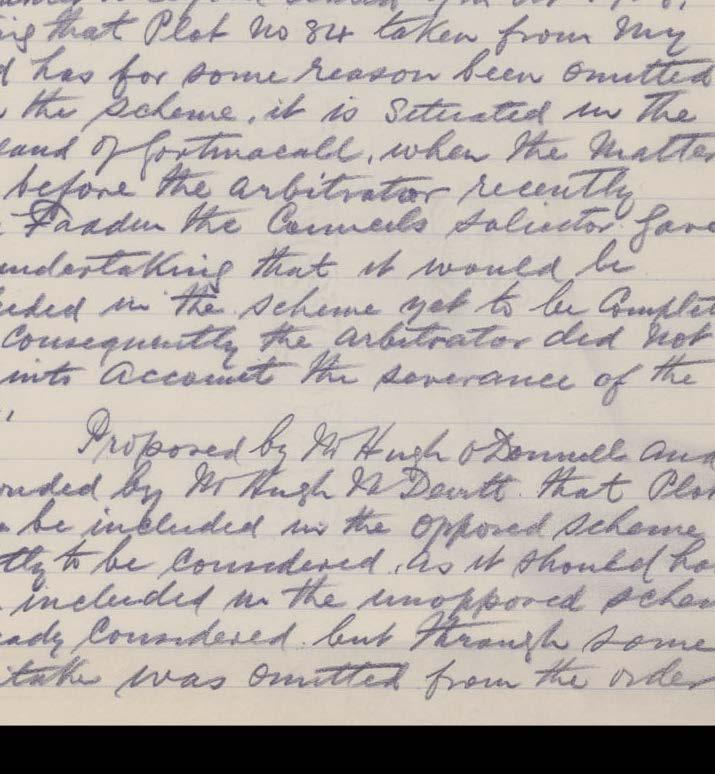 ing that Plot No 84 taken from My
d has for some reason been omitted
the scheme, it is Situated in the
land of Gortmacall, when the Matter
before the arbitrator recently
Fadden the Councils solicitor gave
undertaking that it would be
uded in the scheme yet to be Complet
Consequently the arbitrator did not
into Account the severance of the
"
Proposed by Mr Hugh O'Donnell and
onded by Mr Hugh McDevitt. that Plot
be included in the opposed scheme
tly to be considered. as it should ha
included in the unopposed schem
eady Considered. but through some
stake was omitted from the order